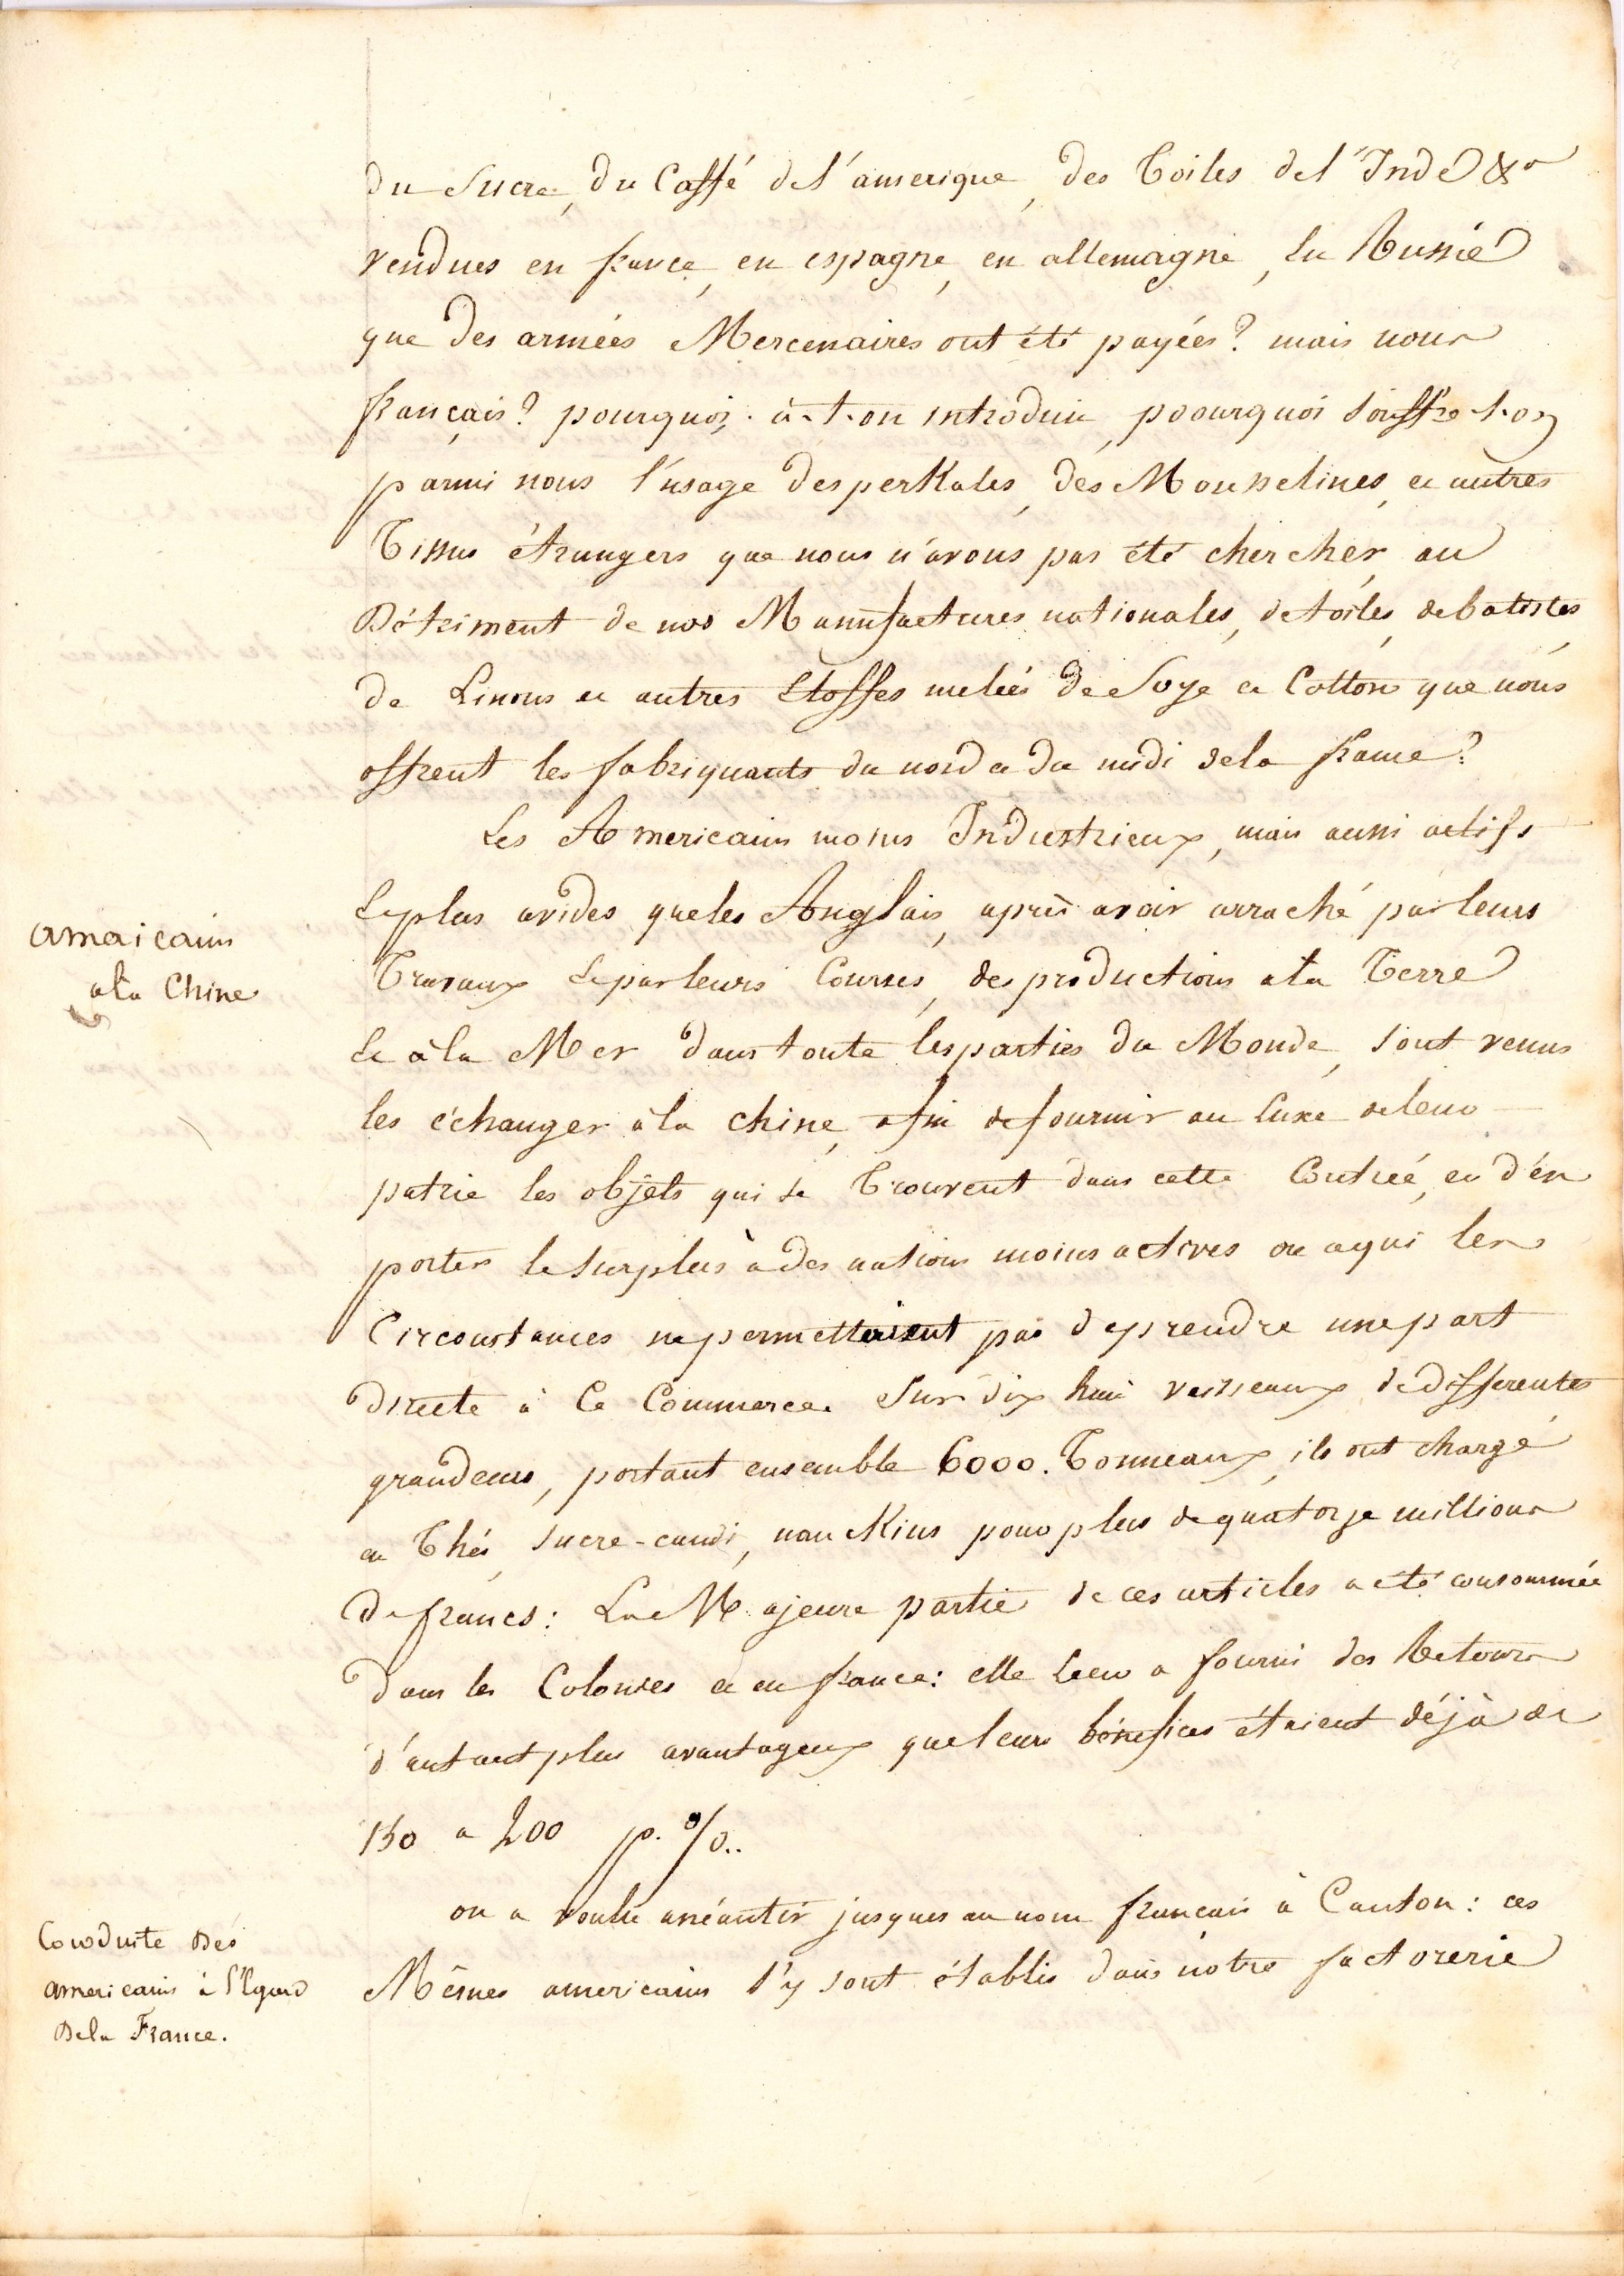 du Sucre, du Caffé de l'amerique, des Toiles de l'Inde &a
vendues en france, en espagne, en allemagne, En Russie
que des armées Mercenaires ont été payées? mais nous
français? pourquoi, a-t-on introduit, poourquoi souffre-t-on
parmi nous l'usage des perKales, des Mousselines, et autres
Tissus étrangers que nous n'avons pas été chercher, au
Détriment de nos Manufactures nationales, de toiles, de batistes,
de Linons et autres Etoffes melées de Soye et Cotton que nous
offrent les fabriquants du nord et du midi de la france?
Les Americains moins Industrieux, mais aussi actifs
Et plus avides que les Anglais, après avoir arraché par leurs
amaicains
Travaux Et par leurs Courses, des productions a la Terre
a la Chine
Et à la Mer dans toute les parties du Monde, sont venus
les échanger à la chine, afin de fournir au luxe de leur
patrie les objets qui se Trouvent dans cette Contrée, et d'en
porter le surplus à des nations moins actives ou a qui les
Circonstances ne permettaient pas d'y prendre une part
directe à Ce Commerce. Sur dix huit vaisseaux de differentes
grandeurs, portant ensemble 6000. Tonneaux, ils ont chargé
en Thés, sucre-candi, nanKins pour plus de quatorze millions
de francs: La Majeure partie de ces articles a été consommée
dans les Colonies et en france: elle leur a fourni des Retours
d'autant plus avantageux que leurs bénéfices étaient déjà de
150 a 200 p. %..
on a voulu anéantir jusques au nom francais à Canton: ces
Conduite Des
Mêmes americains s'y sont établis dans notre factorerie
americains à l'Egard
De la France.